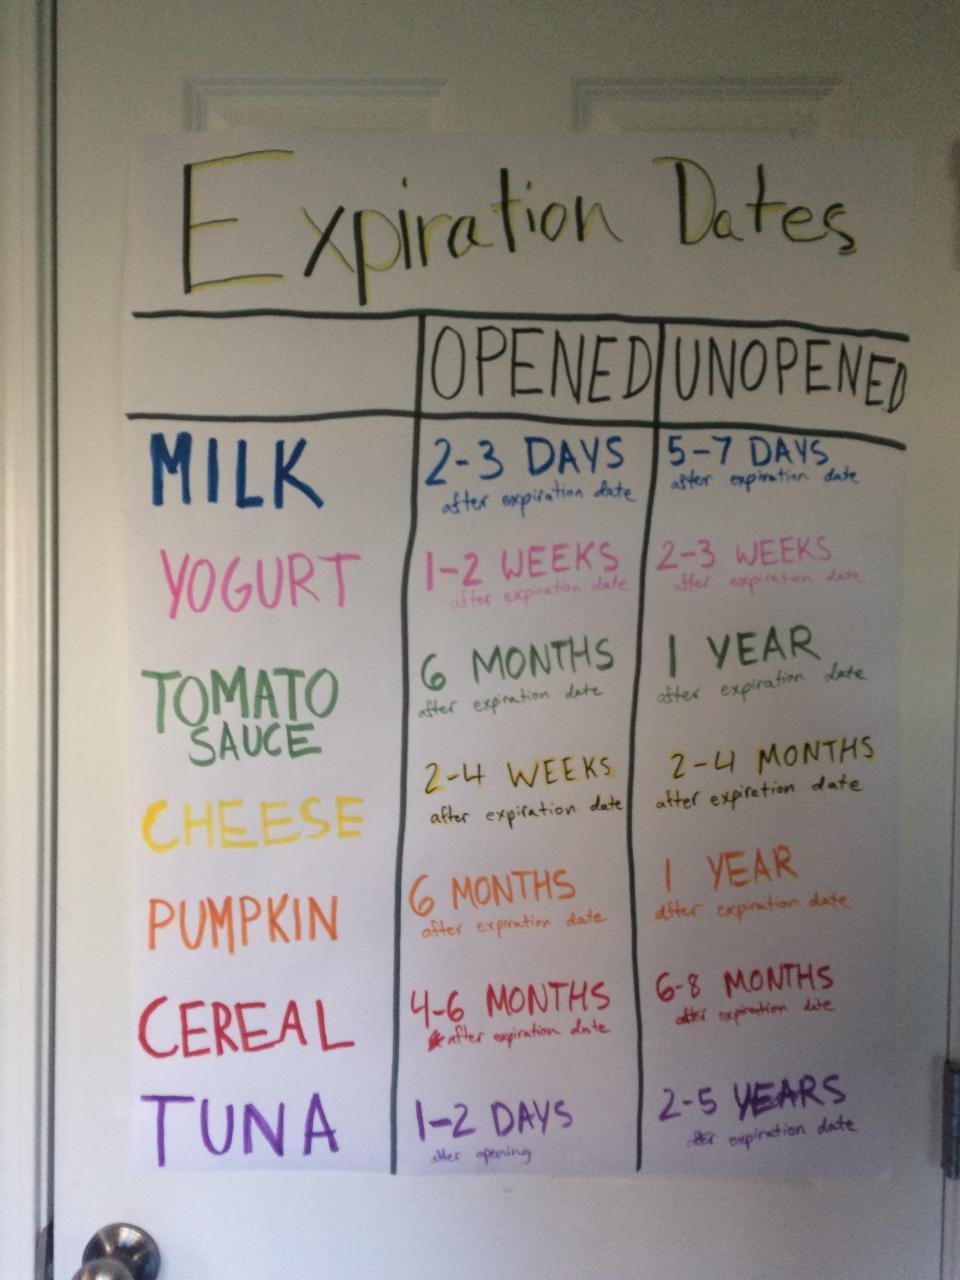 Expiration Dates
OPENED UNOPENED
MILK 2-3 DAYS 5-7 DAYS
after expiration date after expiration date
YOGURT 1-2 WEEKS 2-3 WEEKS
after expiration date after expiration date
TOMATO 6 MONTHS 1 YEAR
SAUCE after expiration date after expiration date
CHEESE 2-4 WEEKS 2-4 MONTHS
after expiration date after expiration date
PUMPKIN 6 MONTHS 1 YEAR
after expiration date after expiration date
CEREAL 4-6 MONTHS 6-8 MONTHS
after expiration date after expiration date
TUNA 1-2 DAYS 2-5 YEARS
after opening after expiration date